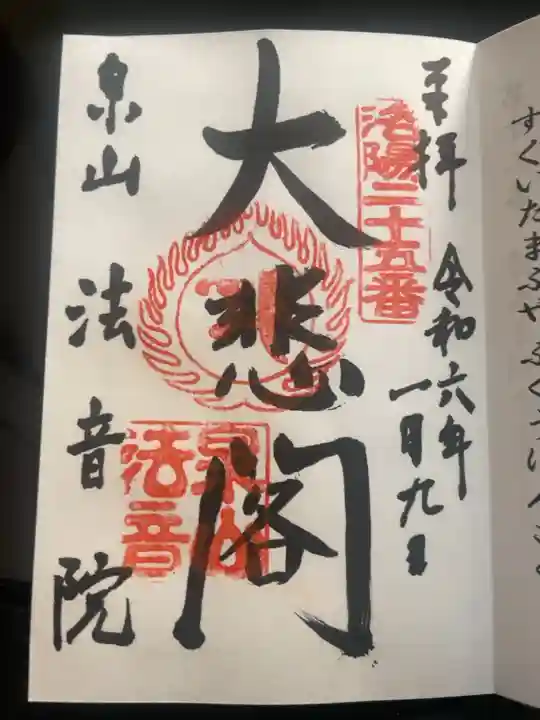 すくいたまふや ふくう
奉拝 令和六年
一月九日
洛陽二十五番
大悲閣
泉山
法音
泉山 法音院